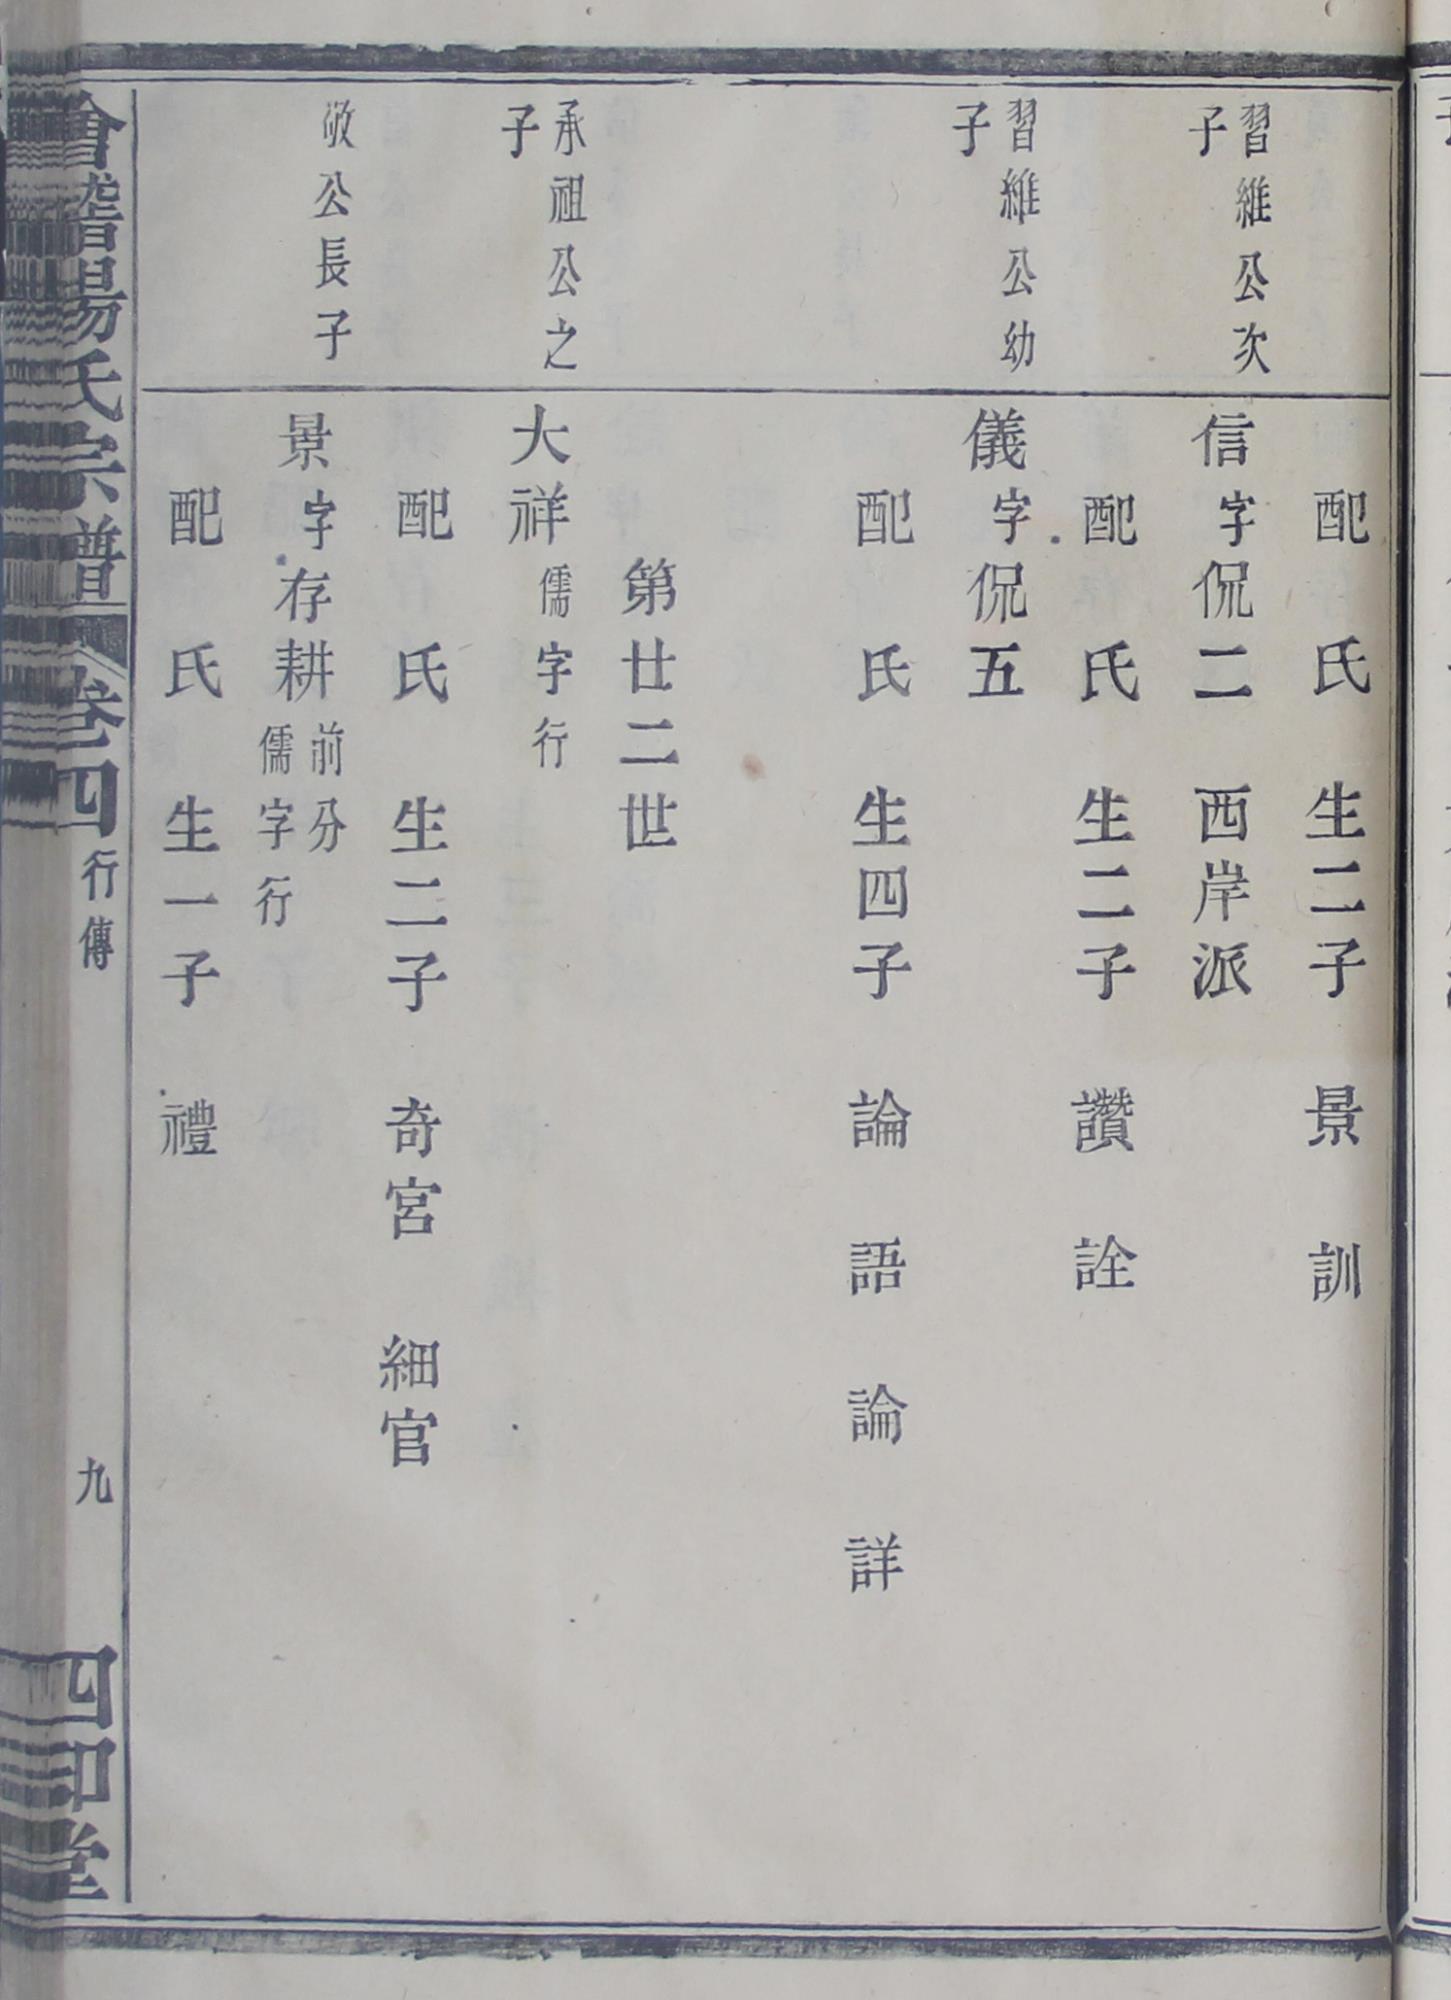 配　氏　生二子　景　訓
習維公次
子
信字侃二　西岸派
配　氏　生二子　讚　詮
習維公幼
子
儀字侃五
配　氏　生四子　論　語　論　詳
第廿二世
承祖公之
子
大祥儒字行
配　氏　生二子　奇宮　細官
敬公長子
景字存耕前分
儒字行
配　氏　生一子　禮
會稽楊氏宗譜　卷四行傳　九　四印堂